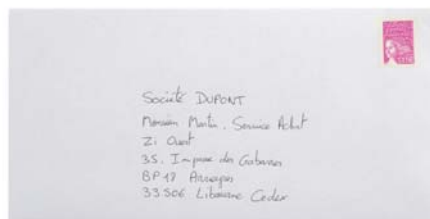 Société DUPONT
Monsieur Martin. Service Achat
Zi Ouest
35. Impasse des Cabanes
BP 18
33506 Libourne Cedex